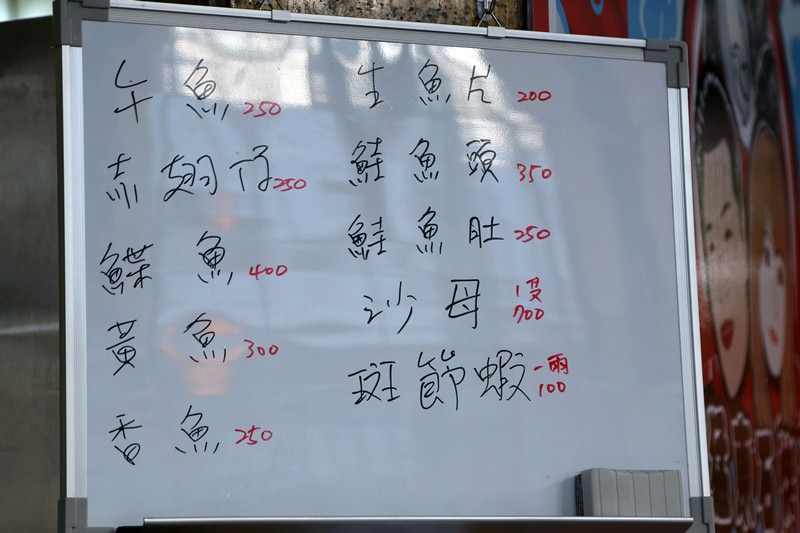 午魚 250
赤翅仔 250
鰈魚 400
黃魚 300
香魚 250
生魚片 200
鮭魚頭 350
鮭魚肚 250
沙母 700
斑節蝦 一兩 100